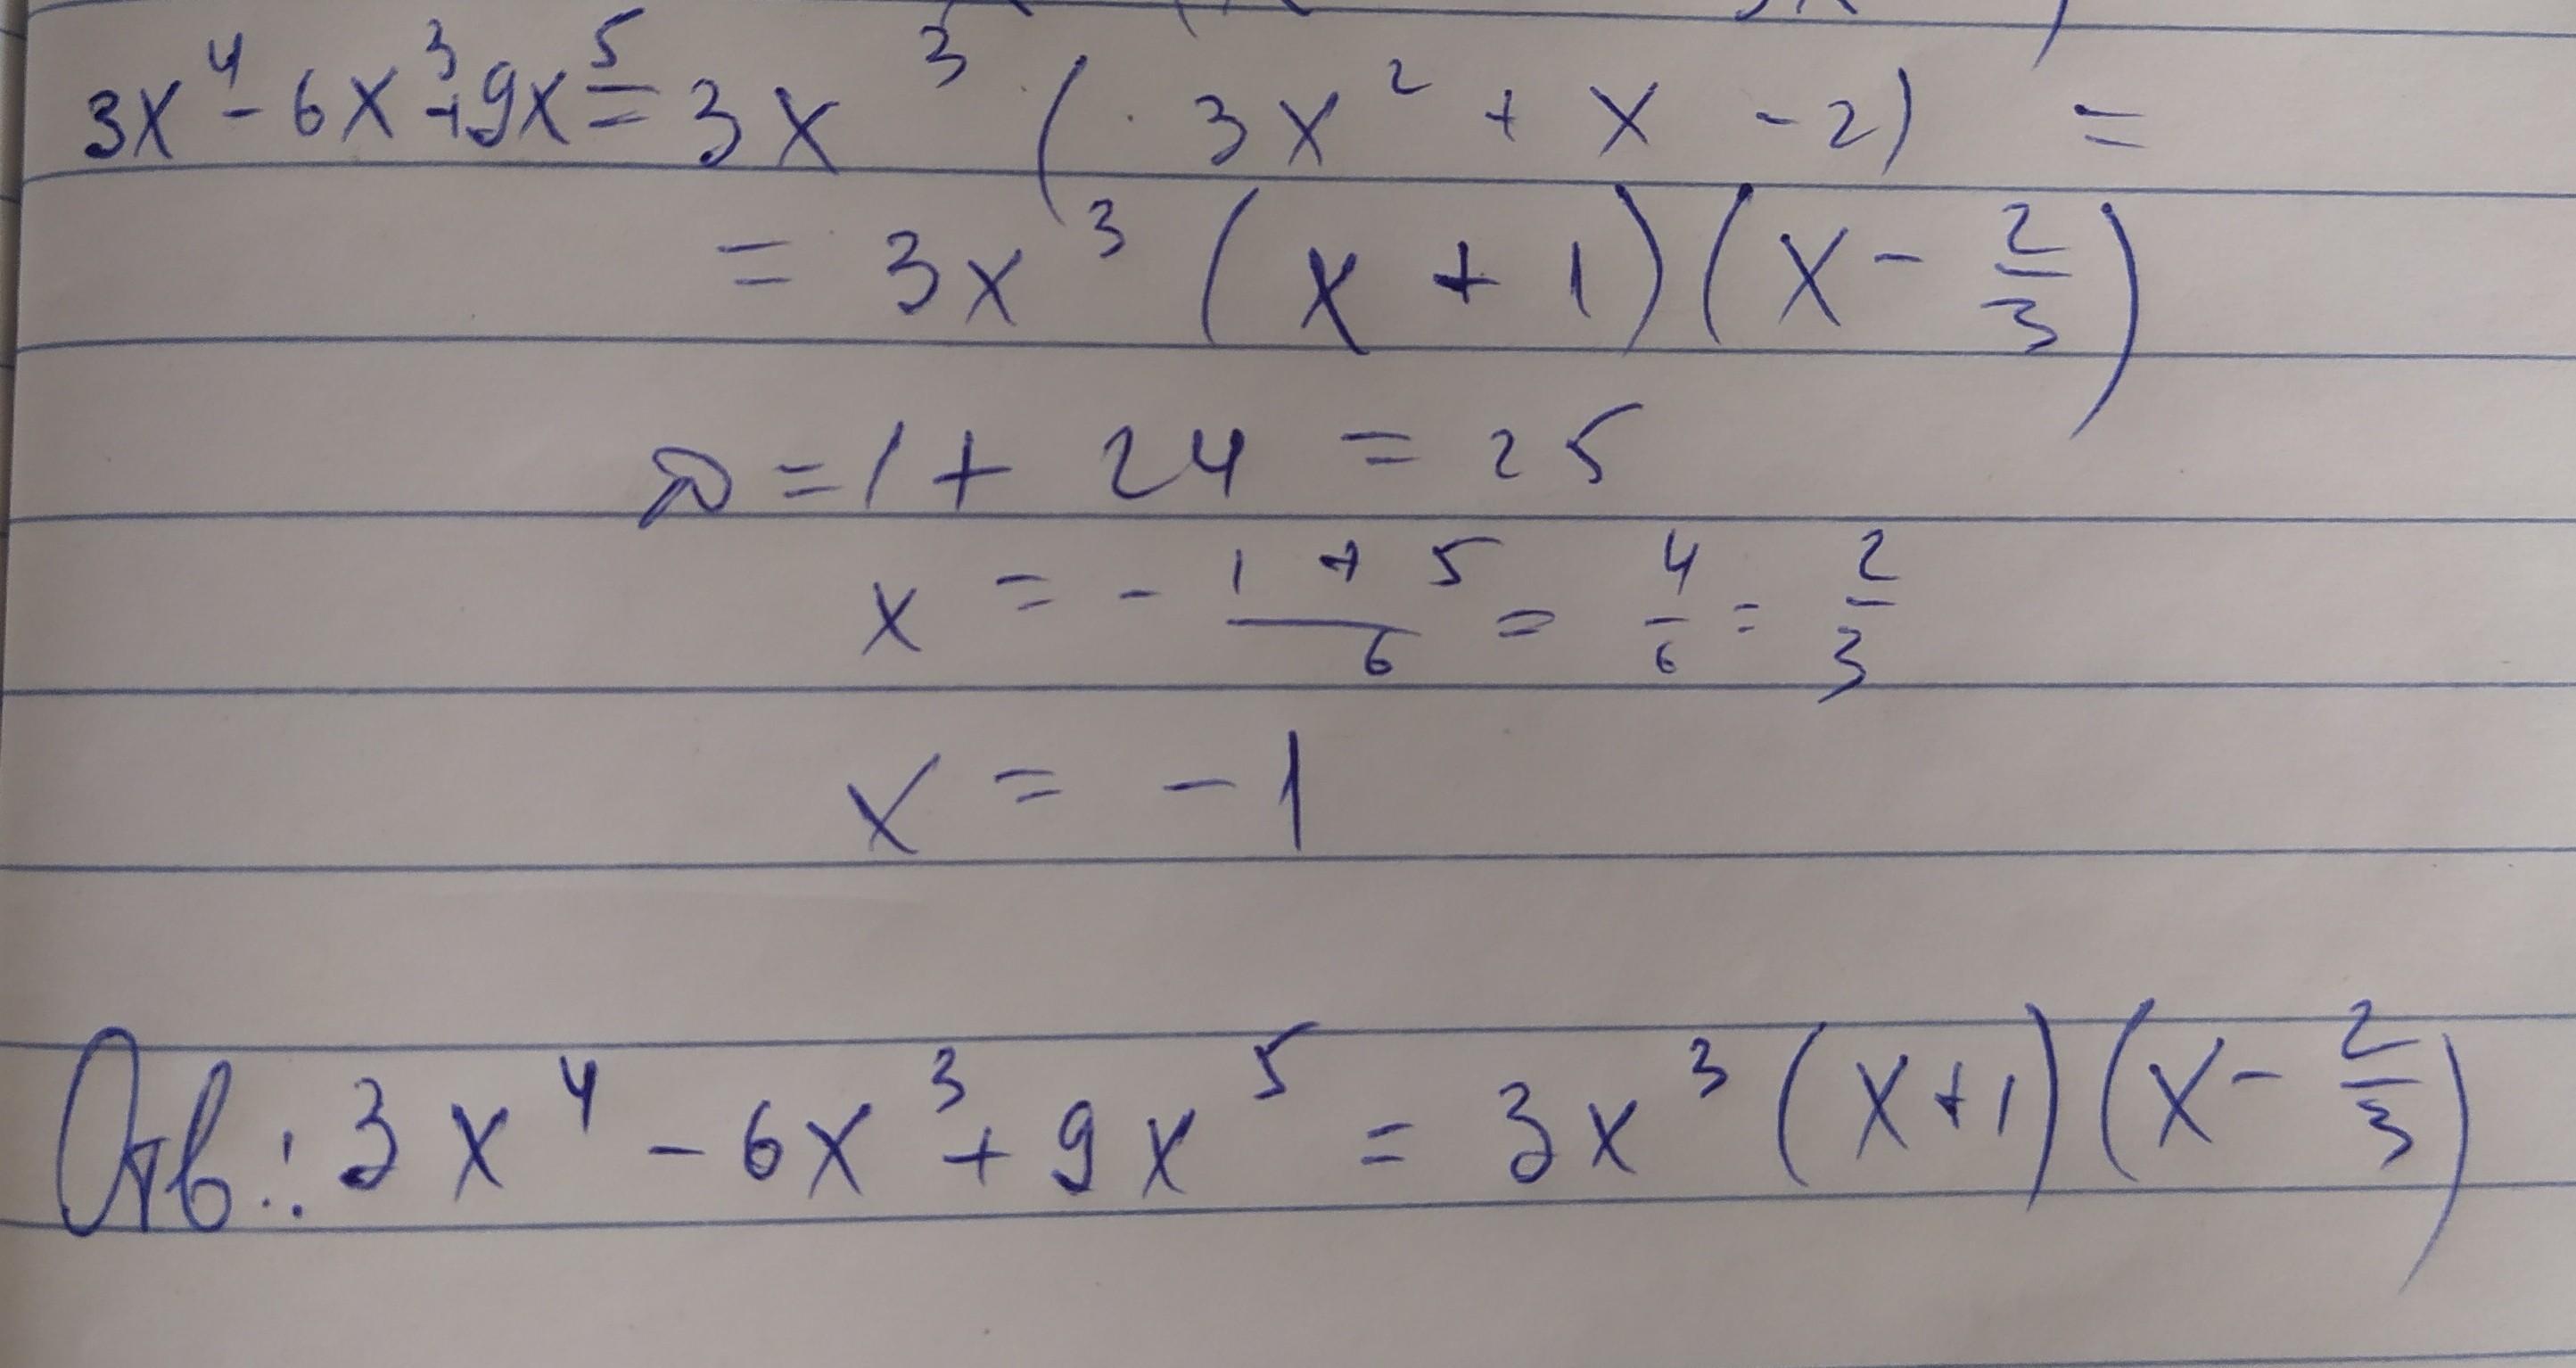 3x⁴ - 6x³ + 9x⁵ = 3x³ (3x² + x - 2) =
= 3x³ (x + 1)(x - 2/3)
D = 1 + 24 = 25
x = - 1 + 5 / 6 = 4/6 = 2/3
x = - 1
Отв.: 3x⁴ - 6x³ + 9x⁵ = 3x³ (x+1)(x - 2/3)